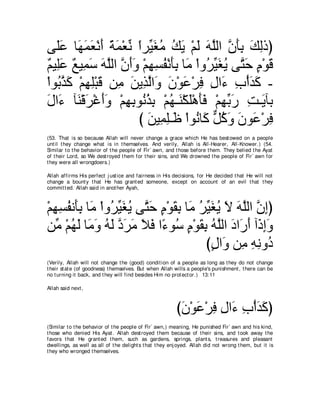 (ذَلِكَ بِأَنَّ اللَّهَ لَمْ يَكُ مُغَيِّراً نِّعْمَةً أَنْعَمَهَا عَلَى
قَوْمٍ حَتَّى يُغَيِّرُواْ مَا بِأَنفُسِهِمْ وَأَنَّ اللَّهَ سَمِيعٌ عَلِيمٌ
- كَدَأْبِ ءَالِ فِرْعَوْنَ وَالَّذِينَ مِن قَبْلِهِمْ كَذَّبُواْ
بآيَـتِ رَبِّهِمْ فَأَهْلَكْنَـهُمْ بِذُنُوبِهِمْ وَأَغْرَقْنَآ ءَالَ
فِرْعَوْنَ وَكُلٌّ كَانُواْ ظَـلِمِينَ )
(53. That is so because Allah will never change a grace which He has bestowed on a people
until they change what is in themselves. And verily, Allah is All-Hearer, All-Knower.) (54.
Similar to the behavior of the people of Fir`awn, and those before them. They belied the Ayat
of their Lord, so We destroyed them for their sins, and We drowned the people of Fir`awn for
they were all wrongdoers.)
Allah affirms His perfect justice and fairness in His decisions, for He decided that He will not
change a bounty that He has granted someone, except on account of an evil that they
committed. Allah said in another Ayah,
(إِنَّ اللَّهَ لاَ يُغَيِّرُ مَا بِقَوْمٍ حَتَّى يُغَيِّرُواْ مَا بِأَنفُسِهِمْ
وَإِذَآ أَرَادَ اللَّهُ بِقَوْمٍ سُوءًا فَلاَ مَرَدَّ لَهُ وَمَا لَهُمْ مِّن
دُونِهِ مِن وَالٍ)
(Verily, Allah will not change the (good) condition of a people as long as they do not change
their state (of goodness) themselves. But when Allah wills a people's punishment, there can be
no turning it back, and they will find besides Him no protector.) 13:11
Allah said next,
(كَدَأْبِ ءَالِ فِرْعَوْنَ)
(Similar to the behavior of the people of Fir`awn,) meaning, He punished Fir`awn and his kind,
those who denied His Ayat. Allah destroyed them because of their sins, and took away the
favors that He granted them, such as gardens, springs, plants, treasures and pleasant
dwellings, as well as all of the delights that they enjoyed. Allah did not wrong them, but it is
they who wronged themselves.